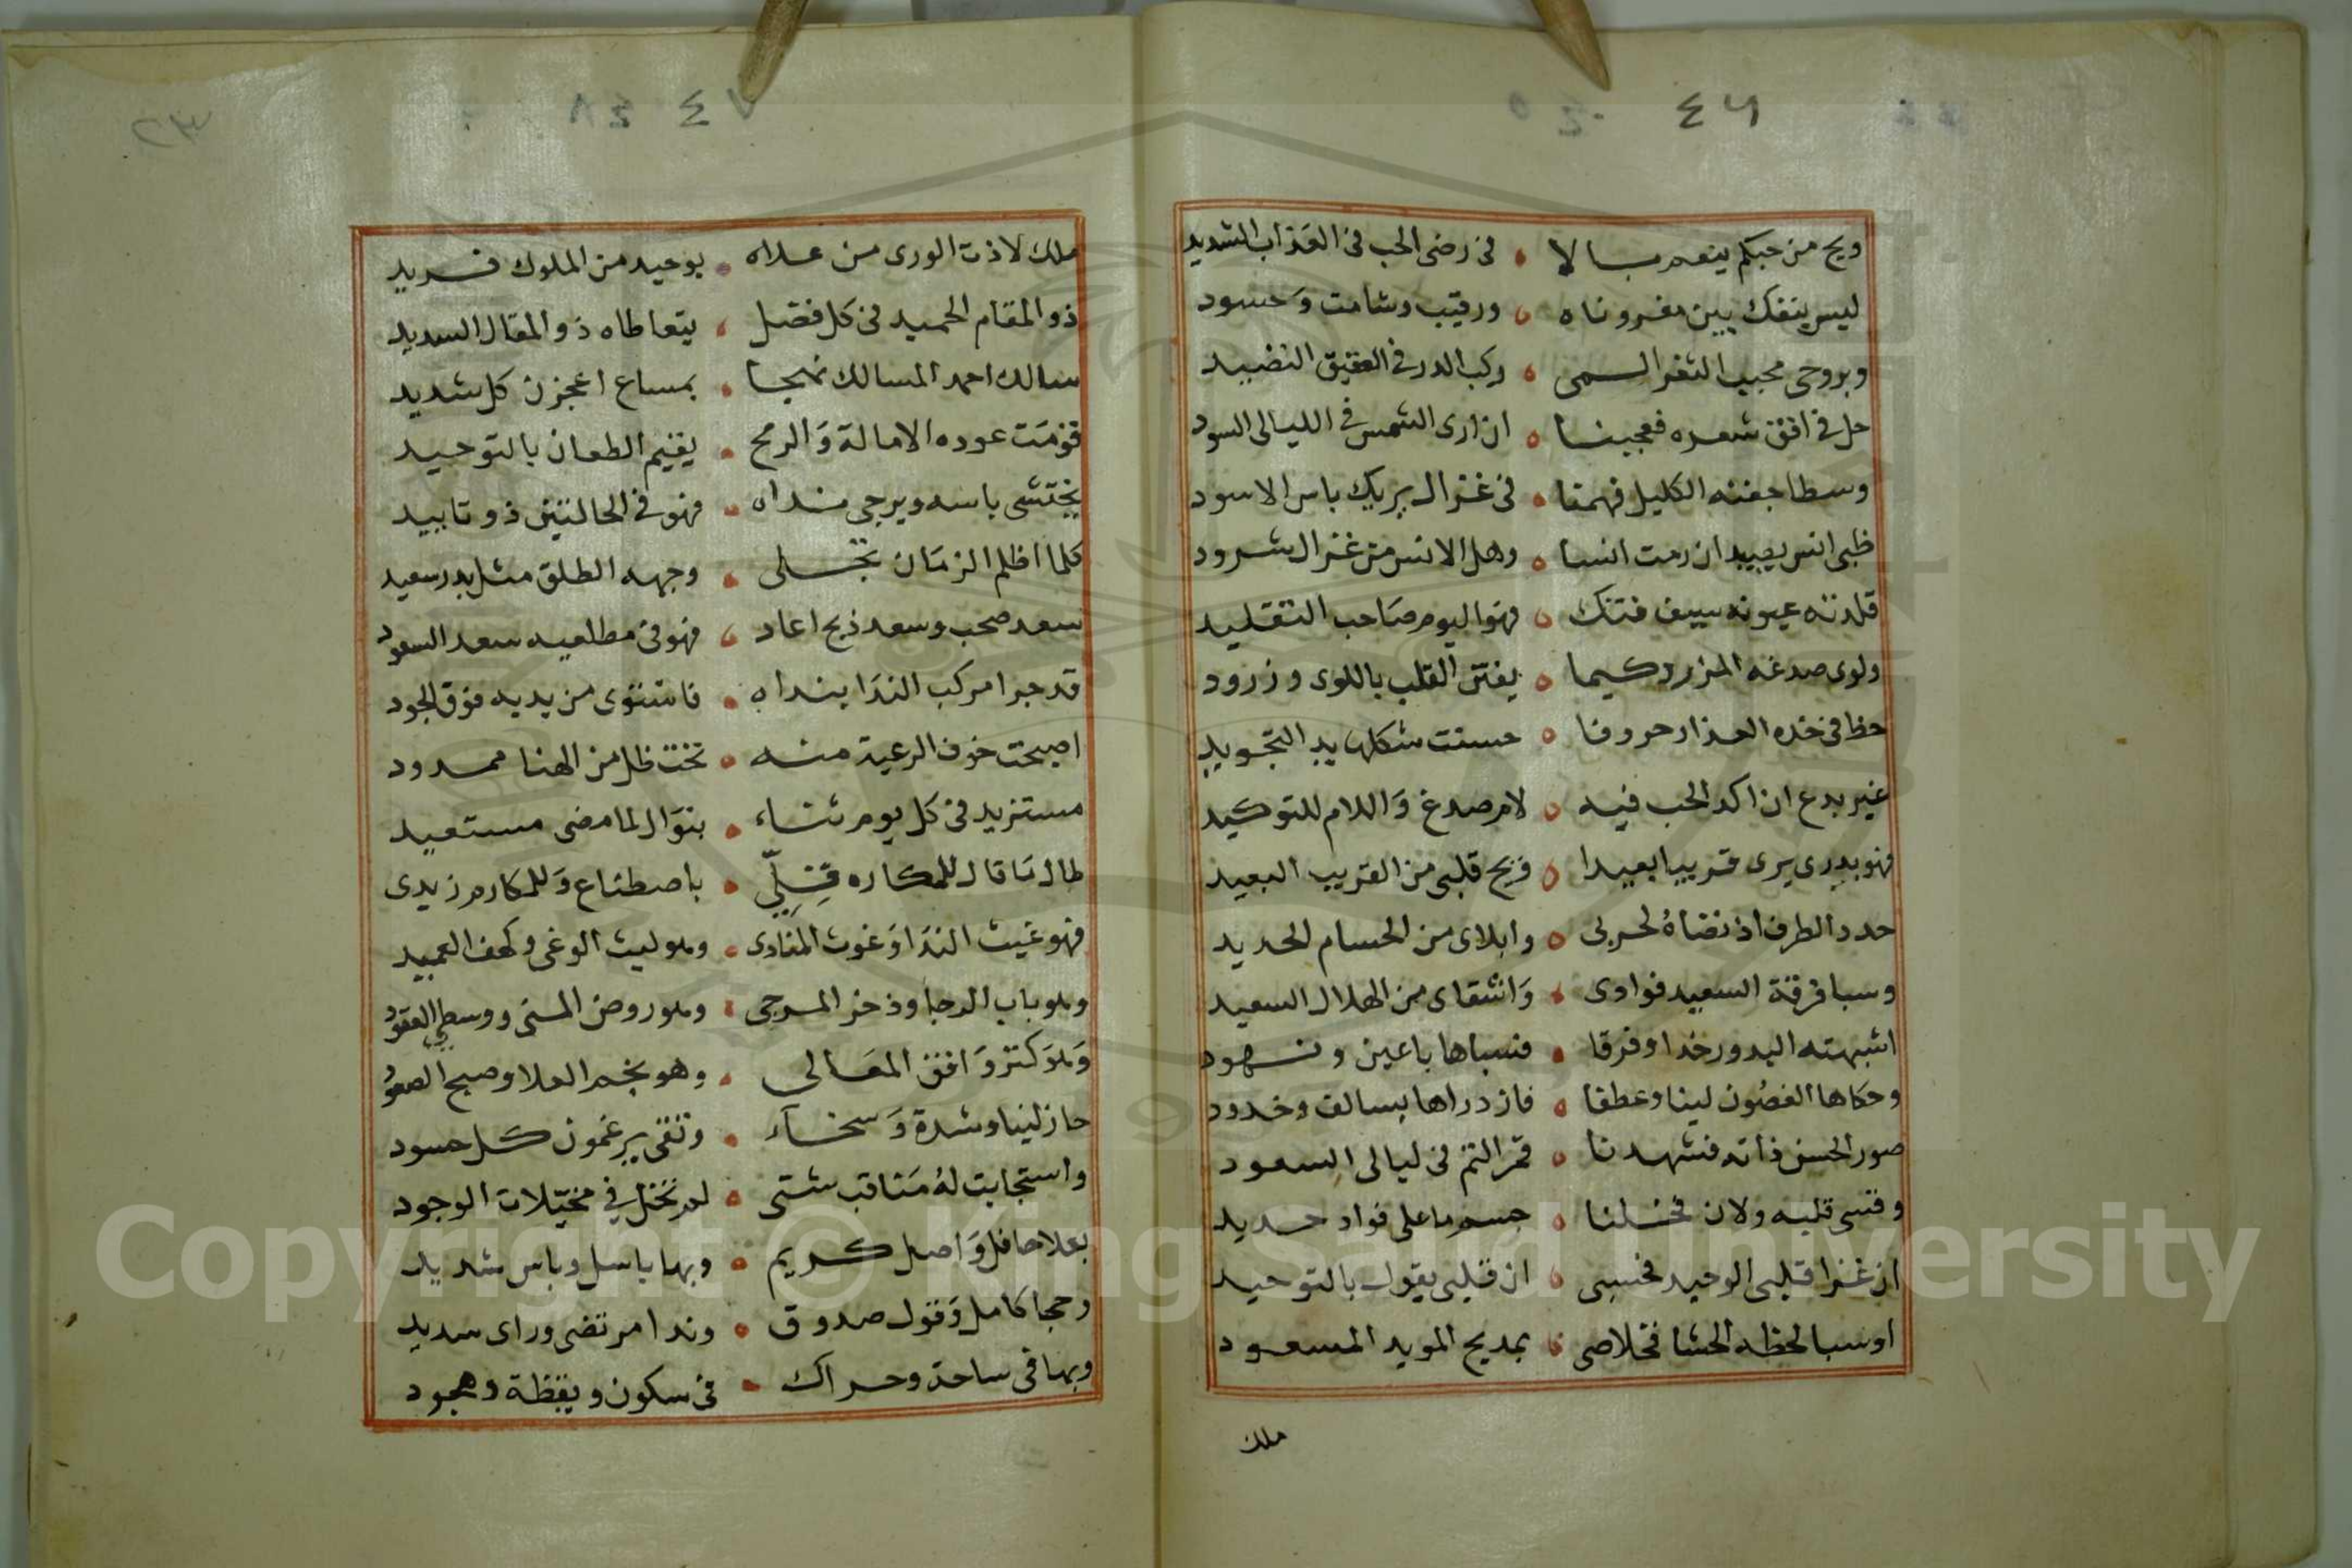 ٤٦
ويح من حبكم ينعم بالا • في رضى الحب في العذاب الشديد
ليس ينفك بين مغروناه • ورقيب وشامت وحسود
وبروحى مجيب الثغر السمى • ركب الدر في العقيق النضيد
حل في افق شعره فعجبنا • ان ارى الشمس في الليالى السود
وسطا جفنه الكليل فهمنا • في غزال يريك باس الاسود
ظبى انس يصيد ان رمت انسا • وهل الانس من غزال شرود
قلدته عيونه سيف فتك • فهو اليوم صاحب التقليد
ولوى صدغه المزرد كيما • يفتن القلب باللوى وزرود
خط في خده العذار حروفا • حسنت شكلها يد التجويد
غير بدع ان اكد الحب فيه • لام صدغ واللام للتوكيد
فهو بدرى يرى قريبا بعيدا • ويح قلبى من القريب البعيد
حدد الطرف اذ نضاه لحربى • وابلاى من الحسام الحديد
وسبا فرقة السعيد فوادى • وانشقاى من الهلال السعيد
اشبهته البدور خدا وفرقا • فسباها باعين ونهود
وحكاها الغصون لينا وعطفا • فازدراها بسالف وخدود
صور الحسن ذاته فشهدنا • قمر التم في ليالى السعود
وقسى قلبه ولان فخلنا • جسم ما على فواد حديد
ان غزا قلبى الوحيد فحسبى • ان قلبى يقول بالتوحيد
او سبا لحظه الحشا فخلاصى • بمديح المويد المسعود
ملك
٤٧
٢٣
ملك لاذت الورى من علاه • بوحيد من الملوك فريد
ذو المقام الحميد في كل فضل • يتعاطاه ذو المقال السديد
سالك احمد المسالك نهجا • بمساع اعجزن كل شديد
قومت عوده الامالة والرمح • يقيم الطعان بالتوحيد
يختشى باسه ويرجى نداه • فهو في الحالتين ذو تاييد
كلما اظلم الزمان تجلى • وجهه الطلق مثل بدر سعيد
سعد صحب وسعد ذبح اعاد • فهو في مطلعيه سعد السعود
قد جرا مركب الندا بنداه • فاستوى من يديه فوق الجود
اصبحت خوف الرعية منه • تحت ظل من الهنا ممدود
مستزيد في كل يوم ثناء • بنوال لما مضى مستعيد
طال ما قال للمكاره قلى • باصطناع وللمكارم زيدى
فهو غيث الندا وغوث المنادى • وهو ليث الوغى وكهف العميد
وهو باب الرجا وذخر المرجى • وهو روض المنى ووسطى العقود
وهو كنز وافق المعالى • وهو نجم العلا وصبح الصعود
حاز لينا وشدة وسخاء • وتقى يرغمون كل حسود
واستجابت له مناقب شتى • لم تخل في مخيلات الوجود
بعلا حافل واصل كريم • وبها باسل وباس شديد
وحجا كامل وقول صدوق • وندا مرتضى وراى سديد
وبها في ساحة وحراك • في سكون ويقظة وهجود
Copyright © King Saud University